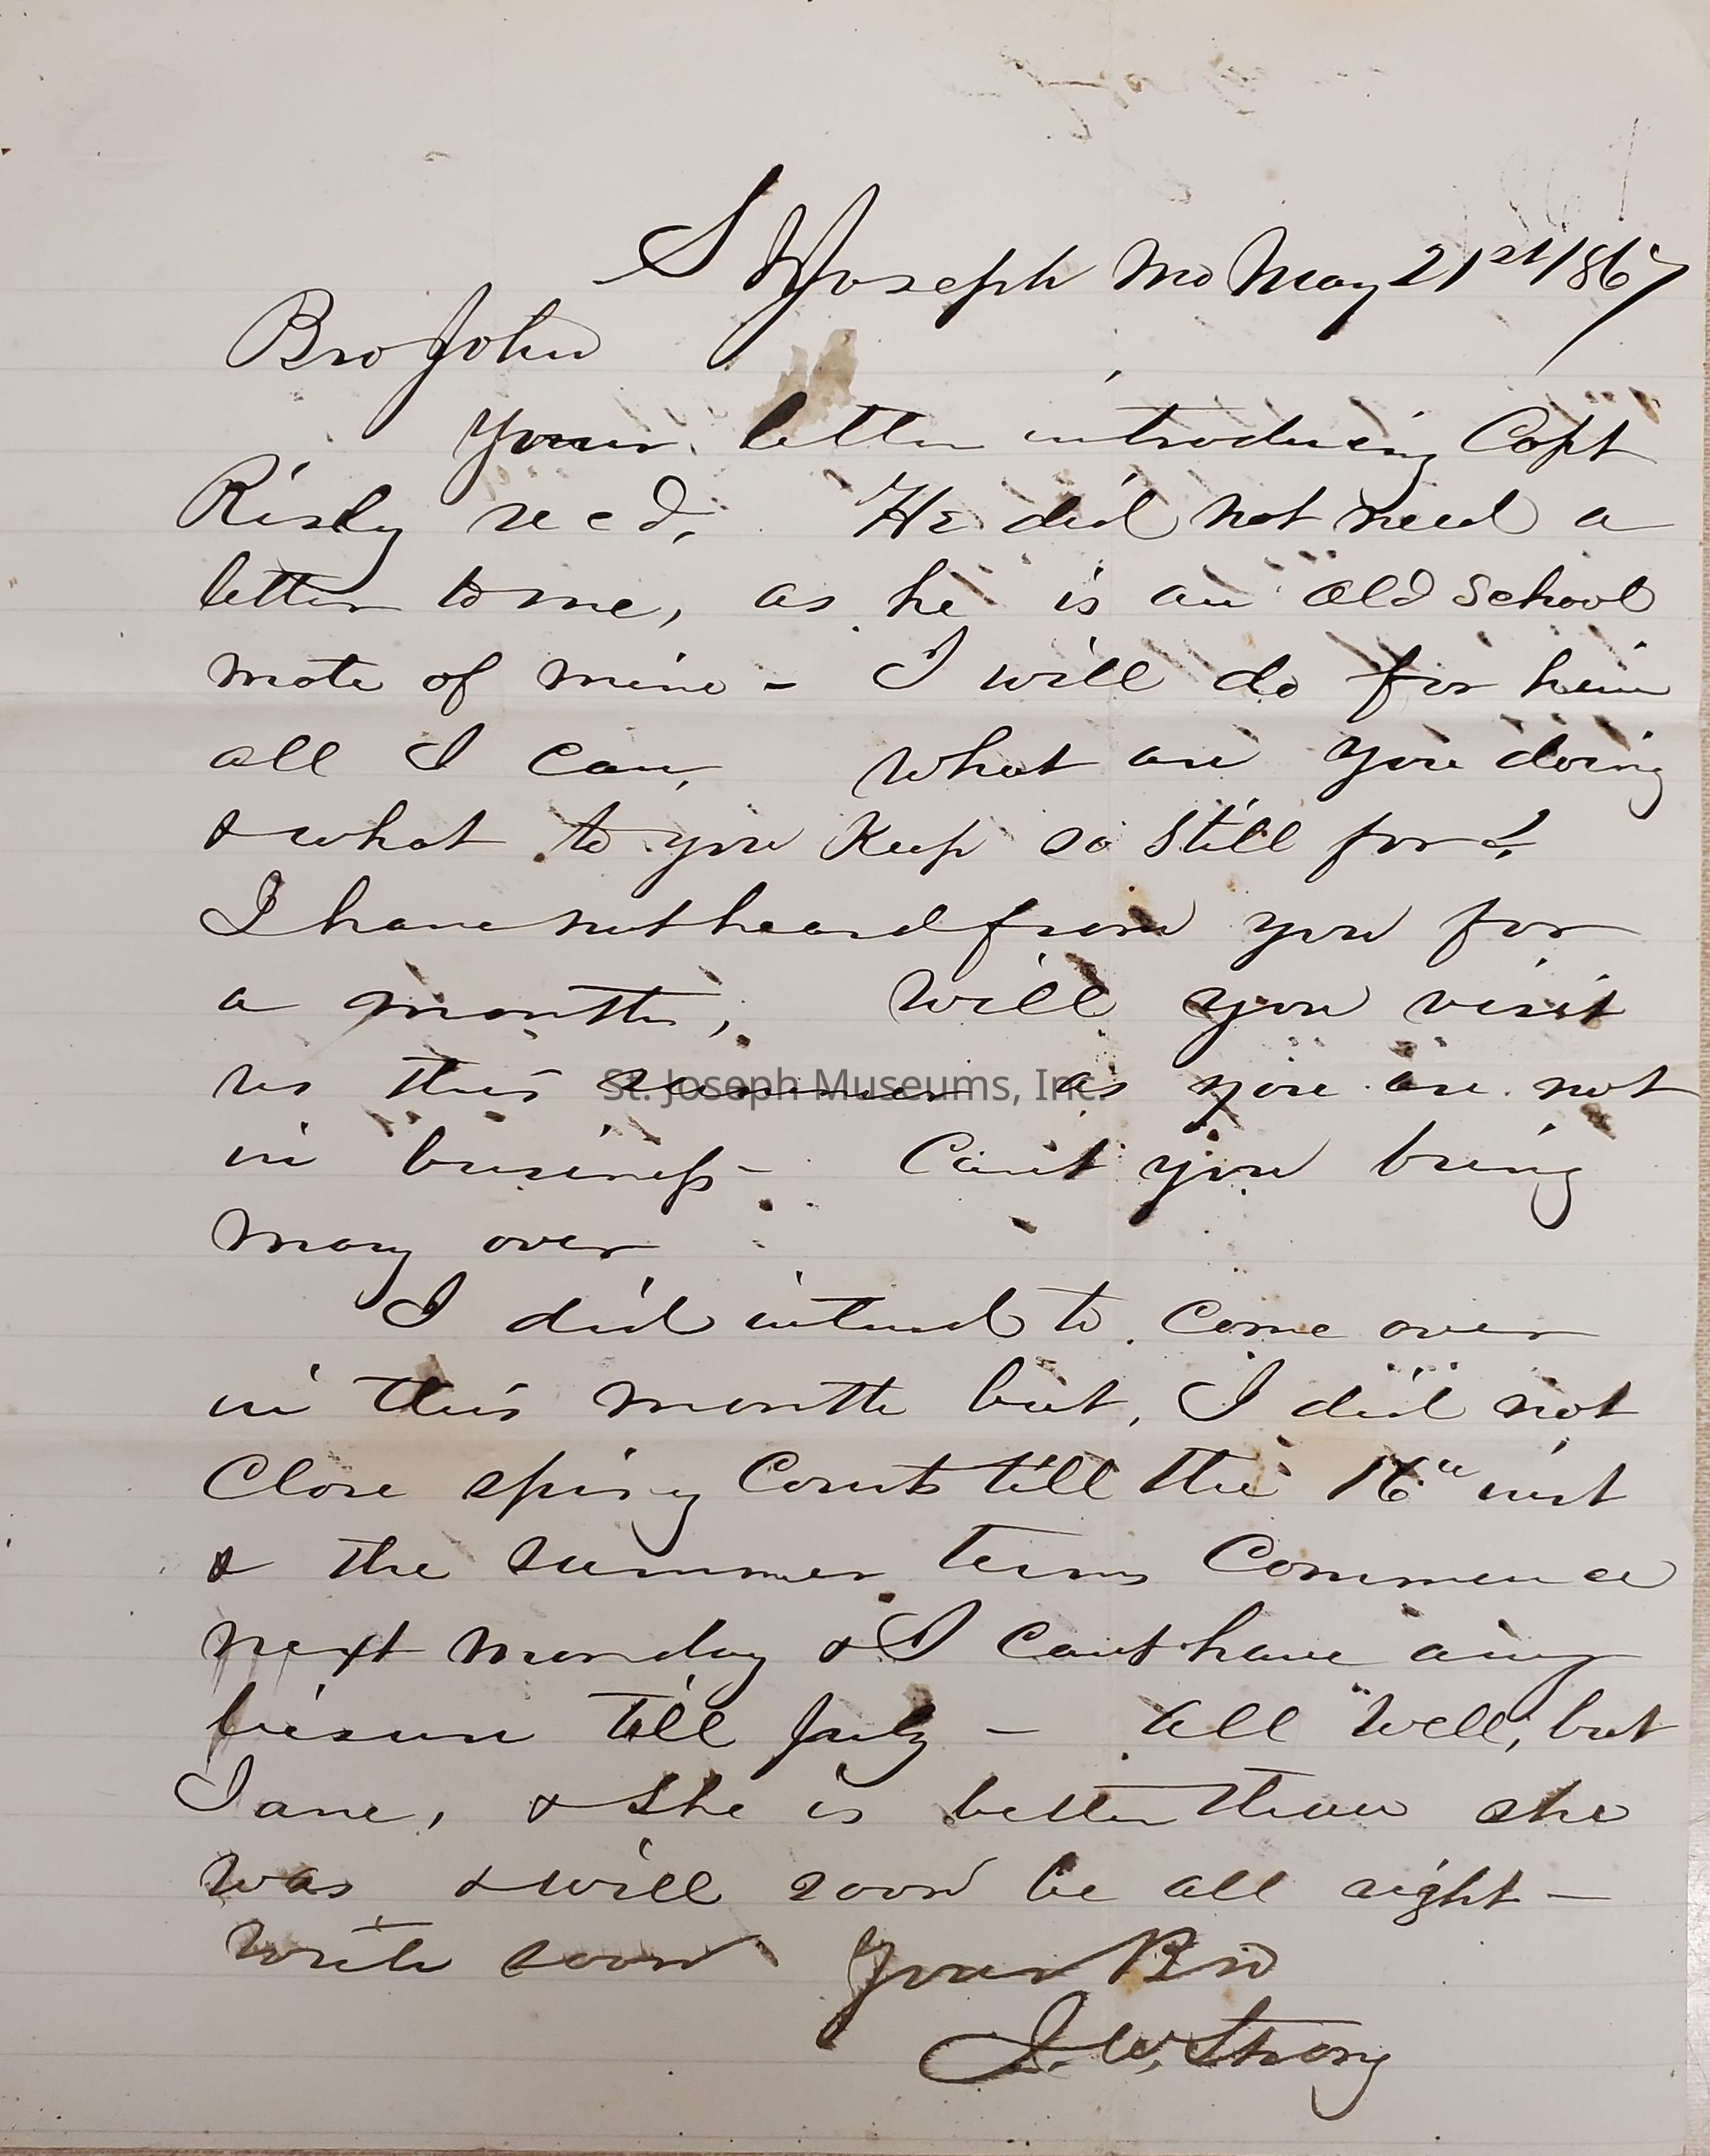 St Joseph Mo May 21st 1867
Bro John
Your letter introducing Capt
Risly recd, He did not need a
letter to me, as he is an old school
mate of mine - I will do for him
all I can, What are you doing
& what to you keep so still for?
I have not heard from you for
a month, Will you visit
us this summer as you are not
in business - Cant you bring
Mary over
I did intend to come over
in this month but, I did not
Close spring Courts till the 16" inst
& the summer terms Commence
next Monday & I cant have any
liesure till July - All well, but
Jane, & she is better than she
was & will soon be all right -
Write soon Your Bro
J. W. Strong
St. Joseph Museums, Inc.